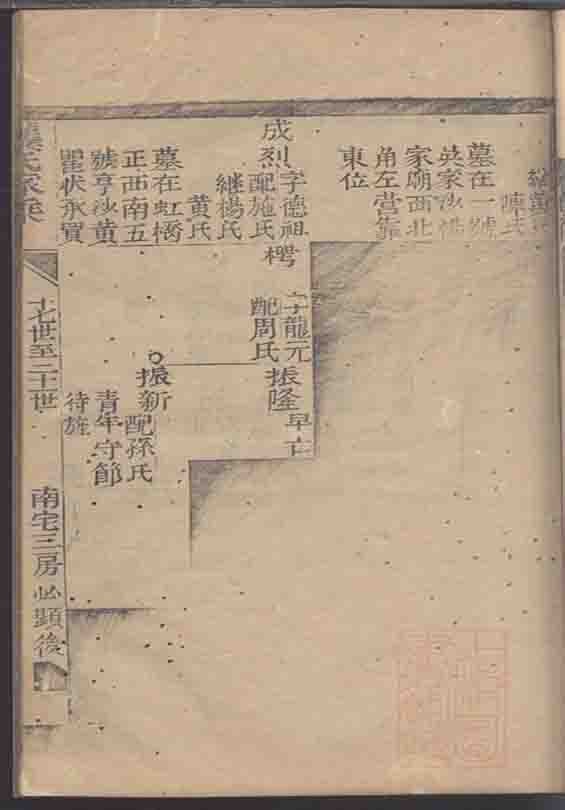 陳氏
墓在一號
吳家沙楊
家廟西北
角左當靠
東位
成烈
字德祖
配施氏
繼楊氏
黄氏
墓在虹橋
正西南五
號亨沙黄
置伏永買
樗
字龍元
配周氏
振隆
早亡
振新
配孫氏
青年守節
待旌
氏家乘
十七世至二十一世
南宅三房必顯後